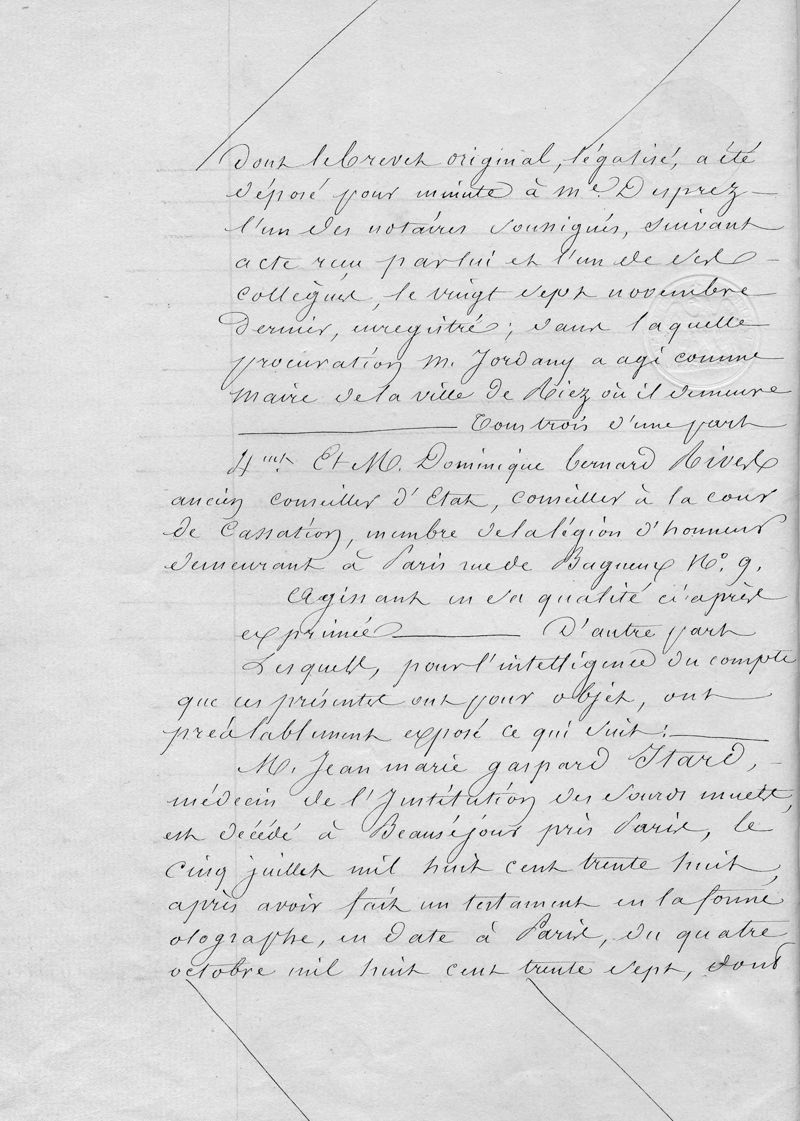 dont le brevet original, légalisé, a été
déposé pour minute à Me. Desprez —
l'un des notaires soussignés, suivant
acte reçu par lui et l'un de ses —
collègues, le vingt sept novembre
dernier, enregistré; dans laquelle
procuration M. Jordany a agi comme
maire de la ville de Riez où il demeure
— Tous trois d'une part
4ent. Et M. Dominique bernard Rives
ancien conseiller d'Etat, conseiller à la cour
de Cassation, membre de la légion d'honneur
demeurant à Paris rue de Bagneux No. 9.
Agissant en sa qualité ci-après
exprimée — D'autre part
Lesquels, pour l'intelligence du compte
que ces présentes ont pour objèt, ont
préalablement exposé ce qui suit: —
M. Jean marie gaspard Itard, —
médecin de l'Institution des sourds muets,
est décédé à Beauséjour près Paris, le
cinq juillet mil huit cent trente huit,
après avoir fait un testament en la forme
olographe, en date à Paris, du quatre
octobre mil huit cent trente sept, dont